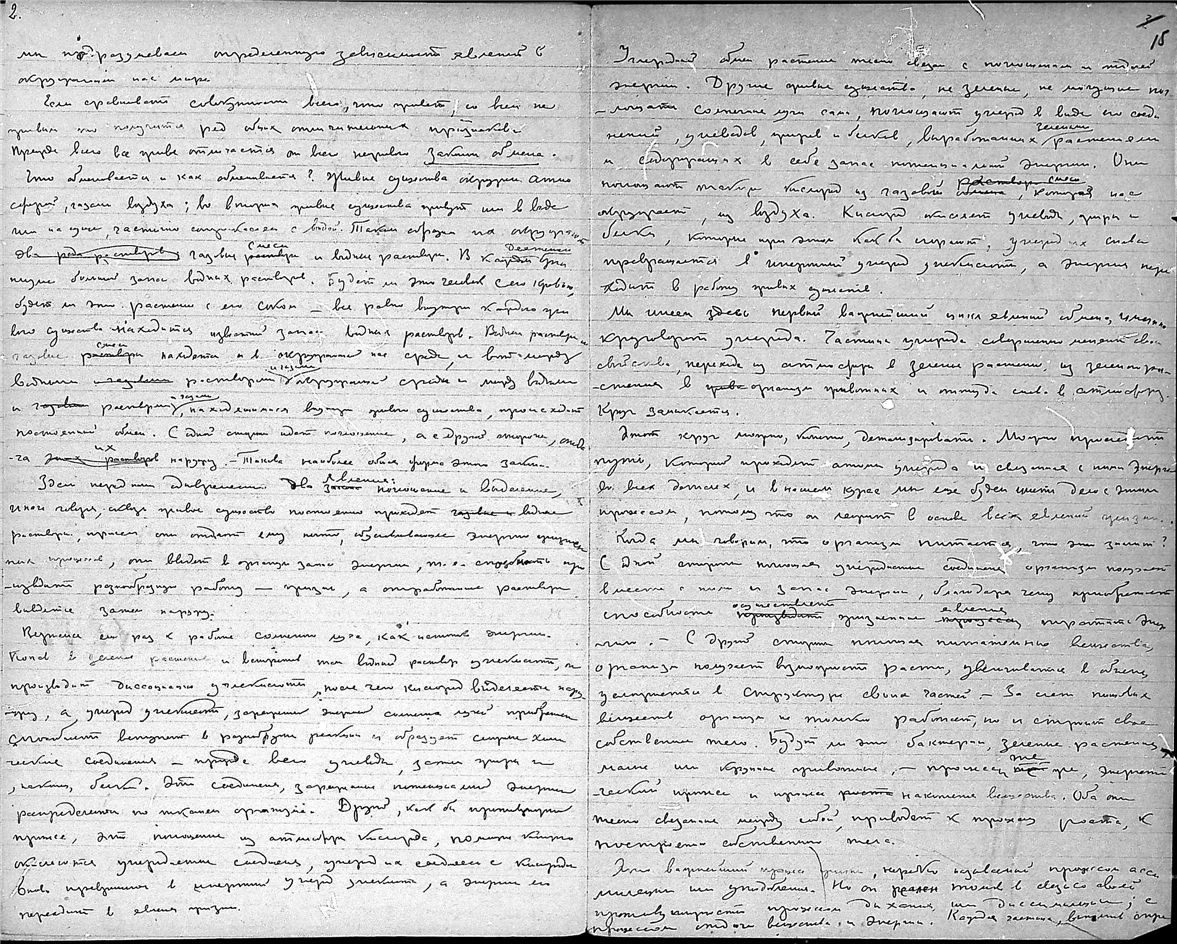 2.
мы подразумеваем определенную зависимость явлений в
окружающем нас мире
Если сравнивать совокупность всего, что живет, со всем не
живым то получится ряд общих отличительных признаков.
Прежде всего все живое отличается от всего неживого законом обмена.
Что обменивается и как обменивается? Живые существа окружены атмо
сферой, газами воздуха; во вторых живые существа живут или в воде
или на суше, частично соприкасаясь с водой. Таким образом их окружают
два рода растворов газовые смеси растворы и водные растворы. В каждом
большой запас водных растворов. Будет ли это человек с его кровью,
будет ли это растение с его соком – все равно внутри каждого жи
вого существа находится известный запас водных растворов. Водные растворы и
газовые смеси растворы находятся и в окружающей нас среде, и вот между
водными растворами и газами окружающей среды и между водными
и растворами, находящимися внутри живого существа, происходит
постоянный обмен. С одной стороны идет поглощение, а с другой стороны, отда
-ча их наружу. – Такова наиболее общая форма этого закона.
Здесь перед нами одновременно два явления: поглощение и выделение,
иначе говоря, сквозь живое существо постоянно проходят водные
растворы, причем они отдают ему нечто, обуславливающее энергию жизнен
ных процессов, они вводят в организм запас энергии, т.е. способность про
-изводить разнообразную работу – жизни, а отработанные растворы
выводятся затем наружу.
Вернемся еще раз к работе солнечного луча, как источника энергии.
Попав в зеленое растение и встретив там водный раствор углекислоты, он
производит диссоциацию углекислоты, после чего кислород выделяется нару
-жу, а углерод углекислоты, заряженный энергией солнечных лучей приобретает
способность вступать в разнообразные реакции и образует сложные хими
ческие соединения – прежде всего углеводы, затем жиры и
, наконец, белки. Эти соединения, заряженные потенциальной энергией
распределены по тканям организма. Другой, как бы противоположный
процесс, это поглощение из атмосферы кислорода, помощью которого
окисляются углеродистые соединения, углерод их соединяясь с кислородом
вновь превращается в инертный углерод углекислоты, а энергия его
переходит в явления жизни.
15
Углеродный обмен растения тесно связан с поглощением и отдачей
энергии. Другие живые существа, не зеленые, не могущие пог
-лощать солнечные лучи сами, поглощают углерод в виде его соеди
нений, углеводов, жиров и белков, выработанных зелеными растениями
и содержащих в себе запас потенциальной энергии. Они
поглощают также кислород из газовой смеси, которая нас
окружает, из воздуха. Кислород окисляет углеводы, жиры и
белки, которые при этом как бы сгорают, углерод их снова
превращается в "инертный" углерод углекислоты, а энергия пере
ходит в работу живых существ.
Мы имеем здесь первый важнейший цикл явлений обмена, именно
круговорот углерода. Частица углерода совершенно меняет свои
свойства, переходя из атмосферы в зеленое растение, из зеленого рас-
-тения в организм животных и оттуда снова в атмосферу.
Круг замыкается.
Этот круг можно, конечно, детализировать. Можно проследить
путь, который проходят атомы углерода и связанная с ним энергия
во всех деталях, и в нашем курсе мы еще будем иметь дело с этим
процессом, потому что он лежит в основе всех явлений жизни.
Когда мы говорим, что организм питается, что это значит?
С одной стороны поглощая углеродистые соединения организм получает
вместе с ними и запас энергии, благодаря чему приобретает
способность осуществлять жизненные явления тратящие энер
гию – С другой стороны поглощая питательные вещества,
организм получает возможность расти, увеличиваться в объеме,
усложняться в структуре своих частей – За счет пищевых
веществ организм не только работает, но и строит свое
собственное тело. Будут ли это бактерии, зеленые растения,
малые или крупные животные, – процессы те же, энергети
ческий процесс и процесс накопления вещества. Оба они
тесно связанные между собой, приводят к процессу роста, к
построению собственного тела.
Это важнейший процесс жизни, нередко называемый процессом асси
миляции или уподобления. Но он тоже в связи со своей
противоположностью процессом дыхания, или диссимиляции; с
процессом отдачи вещества и энергии. Каждая частица,